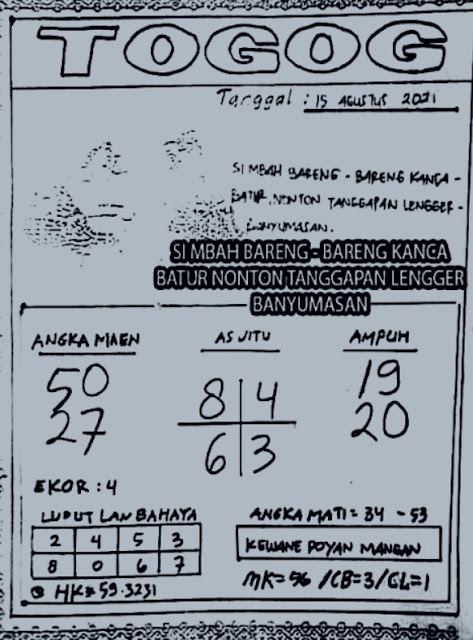 TOGOG
Tanggal : 15 AGUSTUS 2021
SI MBAH BARENG - BARENG KANCA -
BATUR NONTON TANGGAPAN LENGGER -
BANYUMASAN.
SI MBAH BARENG - BARENG KANCA
BATUR NONTON TANGGAPAN LENGGER
BANYUMASAN
ANGKA MAEN AS JITU AMPUH
50 8 4 19
27 6 3 20
EKOR : 4
LUPUT LAN BAHAYA ANGKA MATI = 34 - 53
2 4 5 3
8 0 6 7
KEWANE DOYAN MANGAN
HK= 59.3231 MK=56 /CB=3/CL=1